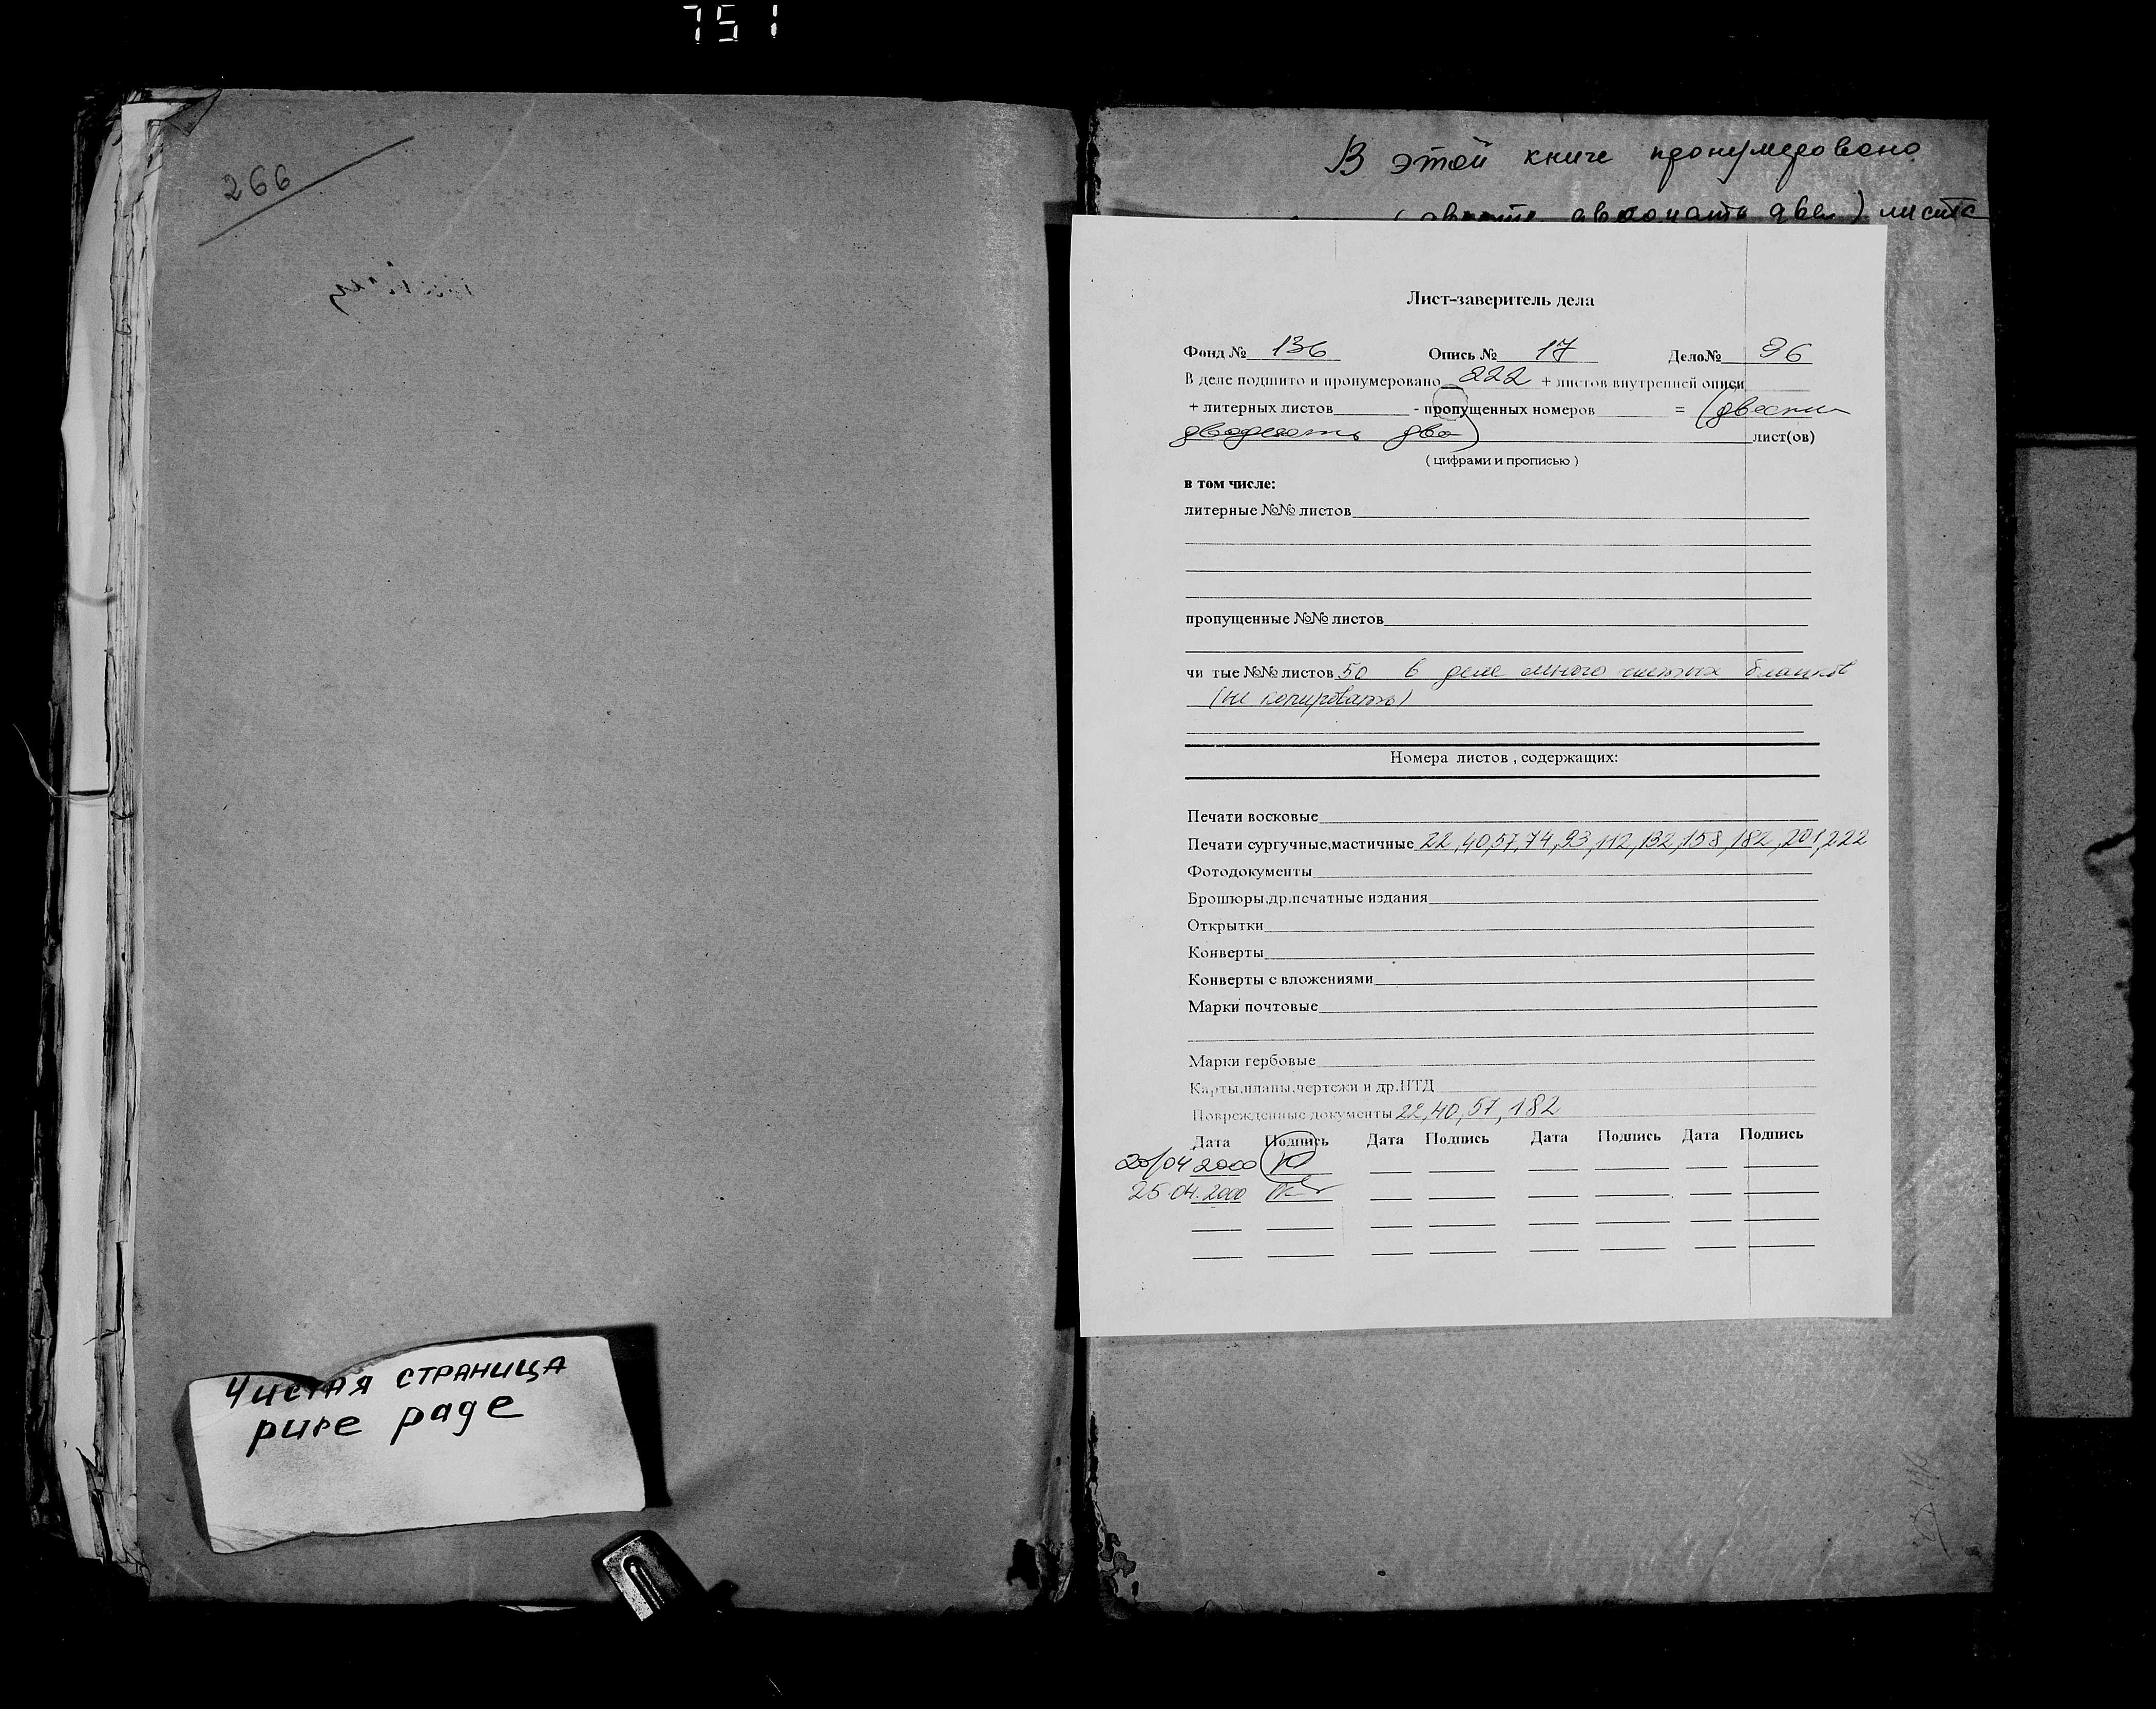 751
266
Чистая страница
pure page
В этой книге пронумеровано
(двести двадцать два) листа
Лист-заверитель дела
Фонд № 136 Опись № 17 Дело№ 96
В деле подшито и пронумеровано 222 + листов внутренней описи
+ литерных листов - пропущенных номеров = (двести
двадцать два) лист(ов)
( цифрами и прописью )
в том числе:
литерные №№ листов
пропущенные №№ листов
чи тые №№ листов 50 в деле много чистых бланков
(не копировать)
Номера листов , содержащих:
Печати восковые
Печати сургучные,мастичные 22,40,57,74,93,112,132,158,182,201,222
Фотодокументы
Брошюры,др.печатные издания
Открытки
Конверты
Конверты с вложениями
Марки почтовые
Марки гербовые
Карты,планы,чертежи и др.НТД
Поврежденные документы 22,40,57,182
Дата Подпись Дата Подпись Дата Подпись Дата Подпись
20/04 2000
25.04.2000